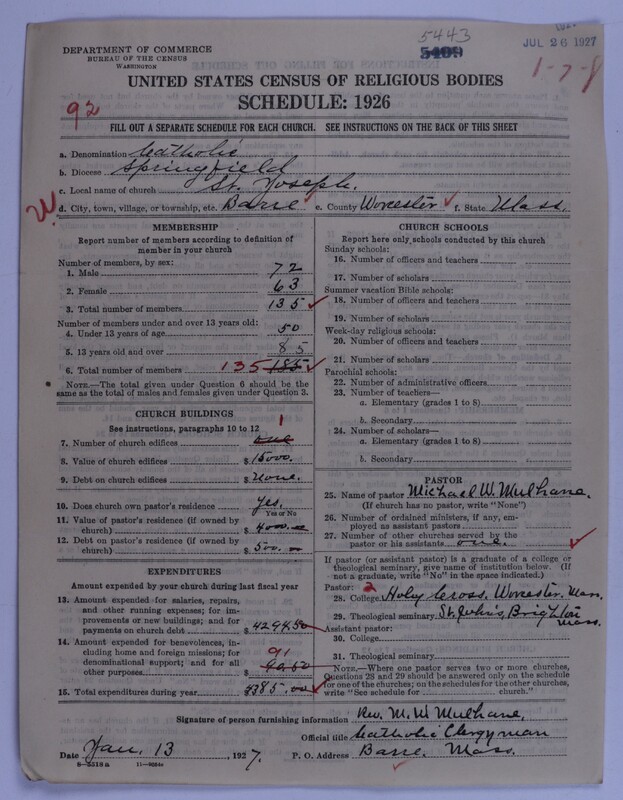 5443
5409
JUL 26 1927
1-7-8
DEPARTMENT OF COMMERCE
BUREAU OF THE CENSUS
WASHINGTON
UNITED STATES CENSUS OF RELIGIOUS BODIES
SCHEDULE: 1926
92
FILL OUT A SEPARATE SCHEDULE FOR EACH CHURCH. SEE INSTRUCTIONS ON THE BACK OF THIS SHEET
a. Denomination Catholic
b. Diocese Springfield
c. Local name of church St. Joseph.
d. City, town, village, or township, etc. Barre e. County Worcester f. State Mass.
MEMBERSHIP
Report number of members according to definition of
member in your church
Number of members, by sex:
1. Male 72
2. Female 63
3. Total number of members 135
Number of members under and over 13 years old:
4. Under 13 years of age 50
5. 13 years old and over 85
6. Total number of members 135 185
NOTE.—The total given under Question 6 should be
same as the total of males and females given under Question 3.
CHURCH BUILDINGS
See instructions, paragraphs 10 to 12 1
7. Number of church edifices one
8. Value of church edifices $ 15000.
9. Debt on church edifices $ None.
10. Does church own pastor's residence? Yes.
Yes or No
11. Value of pastor's residence (if owned by
church) $ 4000.
12. Debt on pastor's residence (if owned by
church) $ 500.
EXPENDITURES
Amount expended by your church during last fiscal year
13. Amount expended for salaries, repairs,
and other running expenses; for im-
provements or new buildings; and for
payments on church debt $ 4294.50
14. Amount expended for benevolences, in-
cluding home and foreign missions; for 91
denominational support; and for all
other purposes $ 90.50
15. Total expenditures during year $ 4385.00
CHURCH SCHOOLS
Report here only schools conducted by this church
Sunday schools:
16. Number of officers and teachers
17. Number of scholars
Summer vacation Bible schools:
18. Number of officers and teachers
19. Number of scholars
Week-day religious schools:
20. Number of officers and teachers
21. Number of scholars
Parochial schools:
22. Number of administrative officers
23. Number of teachers—
a. Elementary (grades 1 to 8)
b. Secondary
24. Number of scholars—
a. Elementary (grades 1 to 8)
b. Secondary
PASTOR
25. Name of pastor Michael W. Mulhane.
(If church has no pastor, write "None")
26. Number of ordained ministers, if any, em-
ployed as assistant pastors
27. Number of other churches served by the
pastor or his assistants one.
If pastor (or assistant pastor) is a graduate of a college or
theological seminary, give name of institution below. (If
not a graduate, write "No" in the space indicated.)
Pastor: 2
28. College Holy Cross, Worcester, Mass.
29. Theological seminary St. John's, Brighton
Mass.
Assistant pastor:
30. College
31. Theological seminary
NOTE.—Where one pastor serves two or more churches,
Questions 28 and 29 should be answered only on the schedule
for one of the churches; on the schedules for the other churches,
write "See schedule for church."
Signature of person furnishing information Rev. M. W. Mulhane,
Official title Catholic Clergyman
Date Jan. 13, 1927. P. O. Address Barre, Mass.